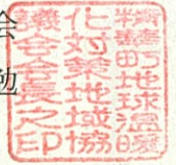 会
勉
精華町地球温暖
化対策地域協
議会会長之印